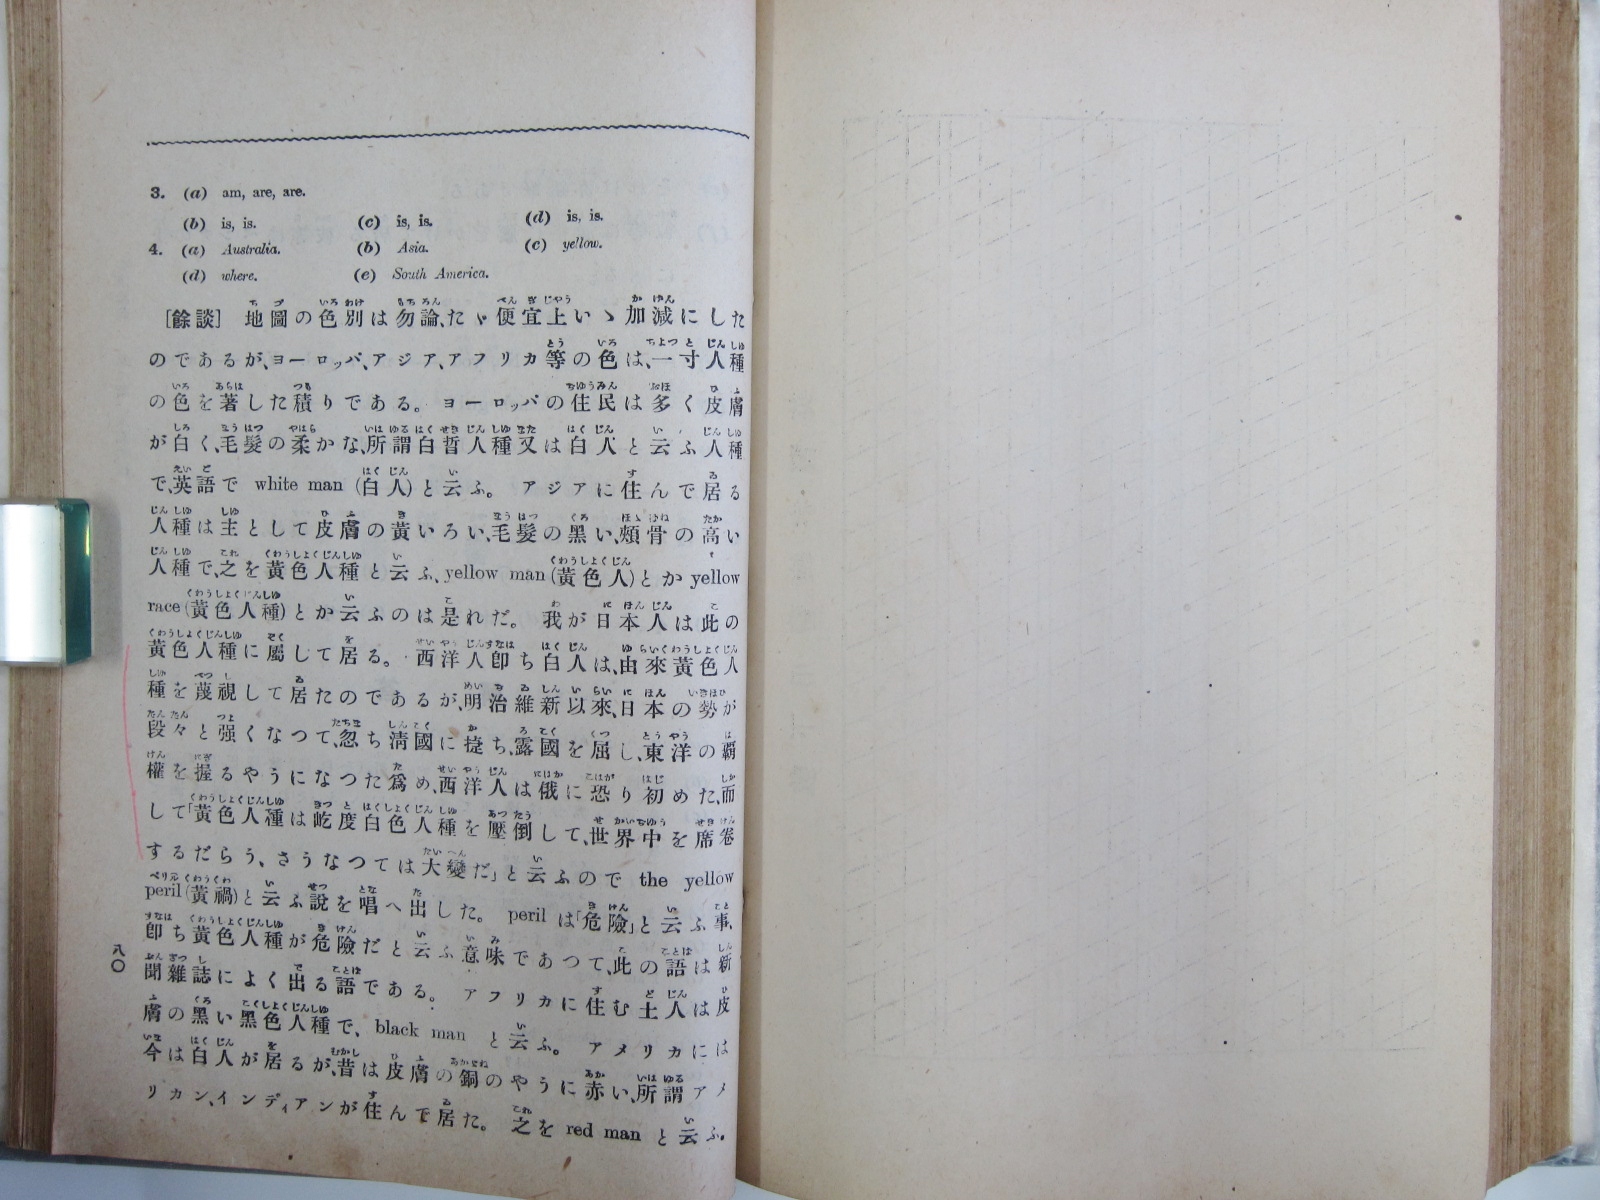 3. (a) am, are, are.
(b) is, is. (c) is, is. (d) is, is.
4. (a) Australia. (b) Asia. (c) yellow.
(d) where. (e) South America.
[餘談] 地圖の色別は勿論、たゞ便宜上いゝ加減にした
のであるが、ヨーロッパ、アジア、アフリカ等の色は、一寸人種
の色を著した積りである。 ヨーロッパの住民は多く皮膚
が白く、毛髮の柔かな、所謂白晳人種又は白人と云ふ人種
で、英語で white man (白人)と云ふ。 アジアに住んで居る
人種は主として皮膚の黃いろい、毛髮の黑い、頰骨の高い
人種で、之を黃色人種と云ふ、yellow man (黃色人)とか yellow
race (黃色人種)とか云ふのは是れだ。 我が日本人は此の
黃色人種に屬して居る。 西洋人卽ち白人は、由來黃色人
種を蔑視して居たのであるが、明治維新以來、日本の勢が
段々と强くなつて、忽ち淸國に捷ち、露國を屈し、東洋の覇
權を握るやうになつた爲め、西洋人は俄に恐り初めた、而
して「黃色人種は屹度白色人種を壓倒して、世界中を席卷
するだらう、さうなつては大變だ」と云ふので the yellow
peril (黃禍)と云ふ說を唱へ出した。 peril は「危險」と云ふ事、
卽ち黃色人種が危險だと云ふ意味であつて、此の語は新
聞雜誌によく出る語である。 アフリカに住む土人は皮
膚の黑い黑色人種で、black man と云ふ。 アメリカには
今は白人が居るが、昔は皮膚の銅のやうに赤い、所謂アメ
リカン、インディアンが住んで居た。 之を red man と云ふ。
八〇